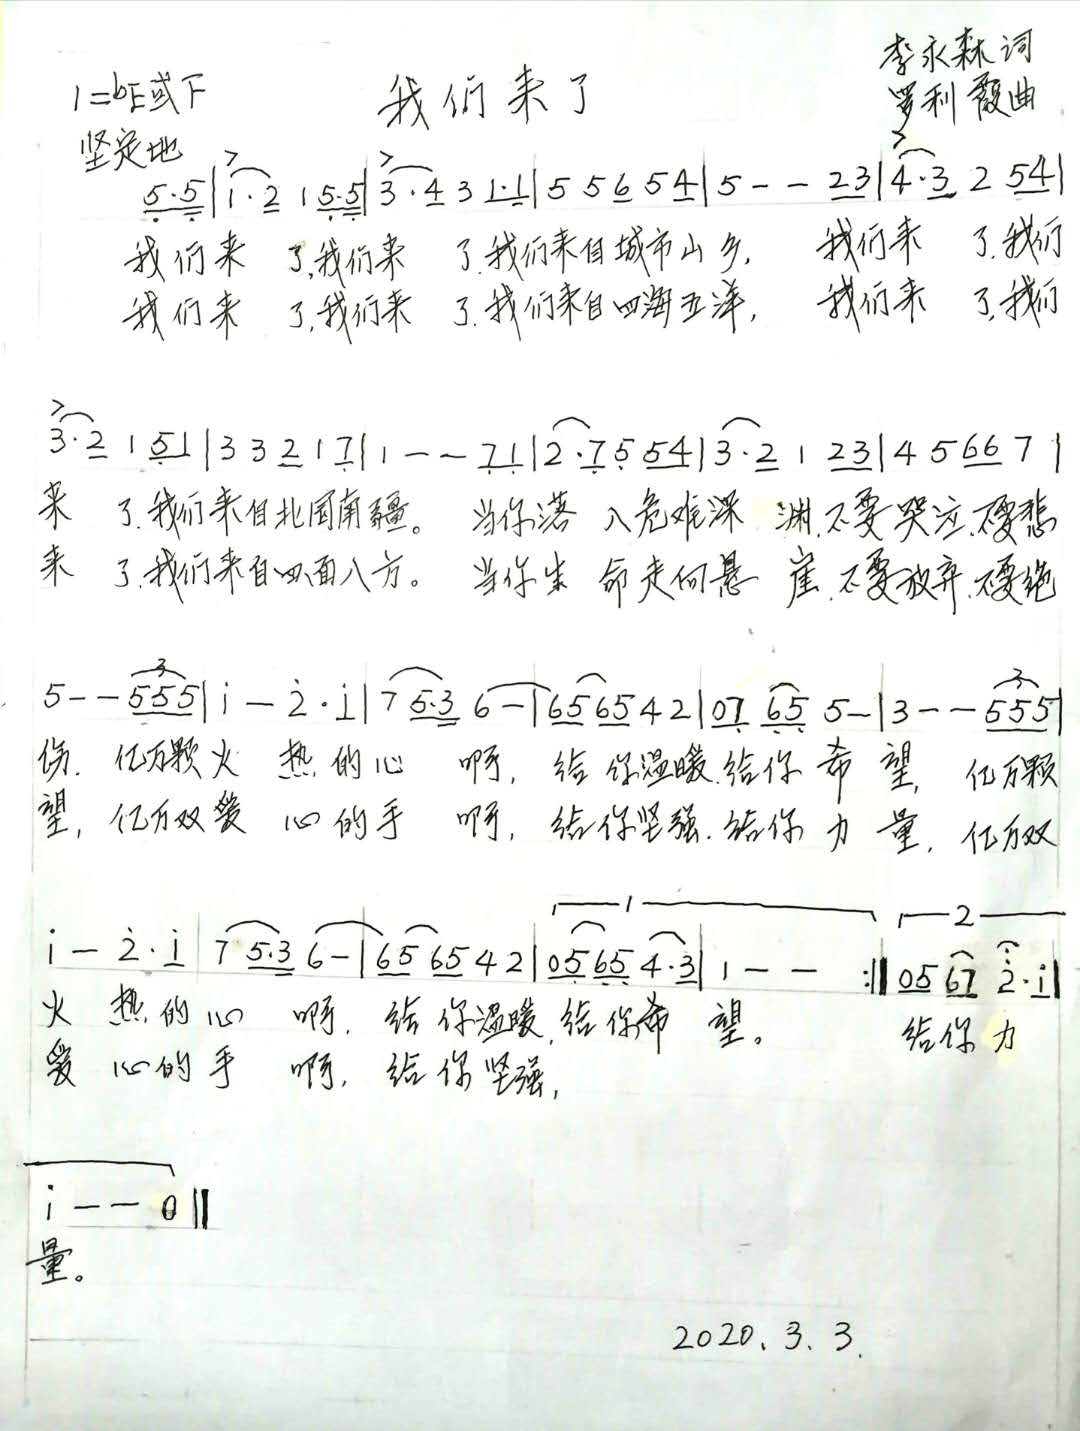 李永森词
1=bE或F 我们来了 罗利霞曲
坚定地
5·5|1·2 1 5·5|3·4 3 1·1|5 5 6 5 4|5 - - 2 3|4·3 2 5 4|
我们来 了,我们来 了.我们来自城市山乡, 我们来 了.我们
我们来 了,我们来 了.我们来自四海五洋, 我们来 了,我们
3·2 1 5 1|3 3 2 1 7|1 - - 7 1|2·7 5 5 4|3·2 1 2 3|4 5 6 6 7|
来 了.我们来自北国南疆。 当你落 入危难深 渊.不要哭泣.不要悲
来 了.我们来自四面八方。 当你生 命走向悬 崖.不要放弃.不要绝
5 - - 5 5 5|i - 2·i|7 5·3 6 -|6 5 6 5 4 2|0 7 6 5 5 -|3 - - 5 5 5|
伤. 亿万颗火 热的心 啊, 给你温暖.给你希望, 亿万颗
望, 亿万双爱 心的手 啊, 给你坚强.给你力量, 亿万双
1 2
i - 2·i|7 5·3 6 -|6 5 6 5 4 2|0 5 6 5 4·3|1 - - :‖0 5 6 7 2·i|
火 热的心 啊. 给你温暖,给你希 望。 给你力
爱 心的手 啊, 给你坚强,
i - - 0‖
量。
2020.3.3.